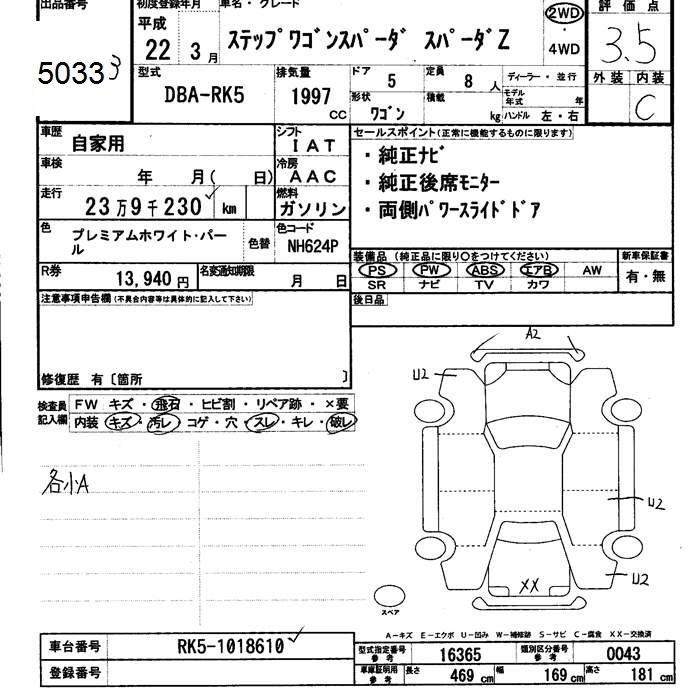 出品番号 初度登録年月 車名・グレード 評価点
平成 22 3月 ステップワゴンスパーダ スパーダZ 2WD・4WD 3.5
50333
型式 排気量 ドア 5 定員 8 人 ディーラー・並行 外装 内装
DBA-RK5 1997 CC 形状 ワゴン 積載 kg モデル年式 年 ハンドル 左・右 C
車歴 自家用 シフト IAT セールスポイント(正常に機能するものに限ります)
車検 年 月( 日) 冷房 AAC ・純正ナビ
・純正後席モニター
走行 23万9千230 km 燃料 ガソリン ・両側パワースライドドア
色 プレミアムホワイト・パール 色替 色コード NH624P
装備品(純正品に限り〇をつけてください) 新車保証書
R券 13,940円 名変通知期限 月 日 PS PW ABS エアB AW 有・無
SR ナビ TV カワ
注意事項申告欄(不具合内容等は具体的に記入して下さい) 後日品
修復歴 有〔箇所 〕
検査員記入欄 FW キズ・飛石・ヒビ割・リペア跡・×要
内装 キズ・汚レ・コゲ・穴・スレ・キレ・破レ
各小A
A2
U2
U2
U2
XX
スペア
A-キズ E-エクボ U-凹み W-補修跡 S-サビ C-腐食 XX-交換済
車台番号 RK5-1018610 型式指定番号 参考 16365 類別区分番号 参考 0043
登録番号 車庫証明用 参考 長さ 469 cm 幅 169 cm 高さ 181 cm